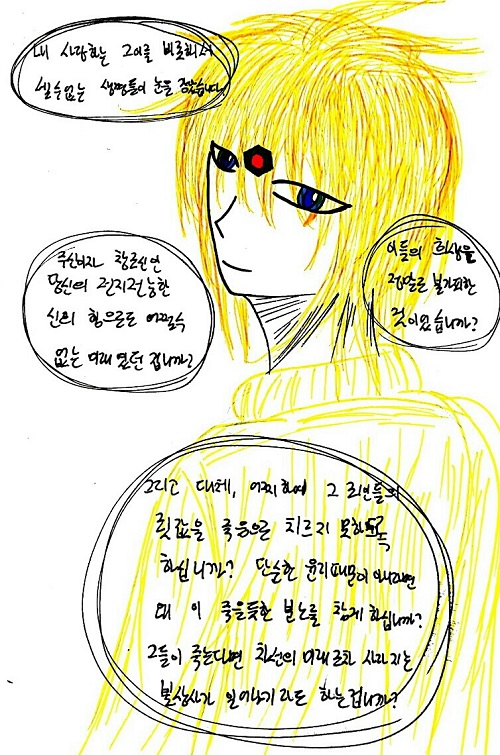 내 사랑하는 그이를 비롯해서
셀수없는 생명들이 눈을 감았습니다.
이들의 희생은
정말로 불가피한
것이었습니까?
주신이자 창조신인
당신의 전지전능한
신의 힘으로도 어쩔수
없는 미래였던 겁니까?
그리고 대체, 어찌하여 그 죄인들의
죗값을 죽음으로 치르지 못하도록
하십니까? 단순한 윤리때문이 아니라면
왜 이 죽을듯한 분노를 참게 하십니까?
그들이 죽는다면 차선의 미래조차 사라지는
불상사가 일어나기라도 하는겁니까?